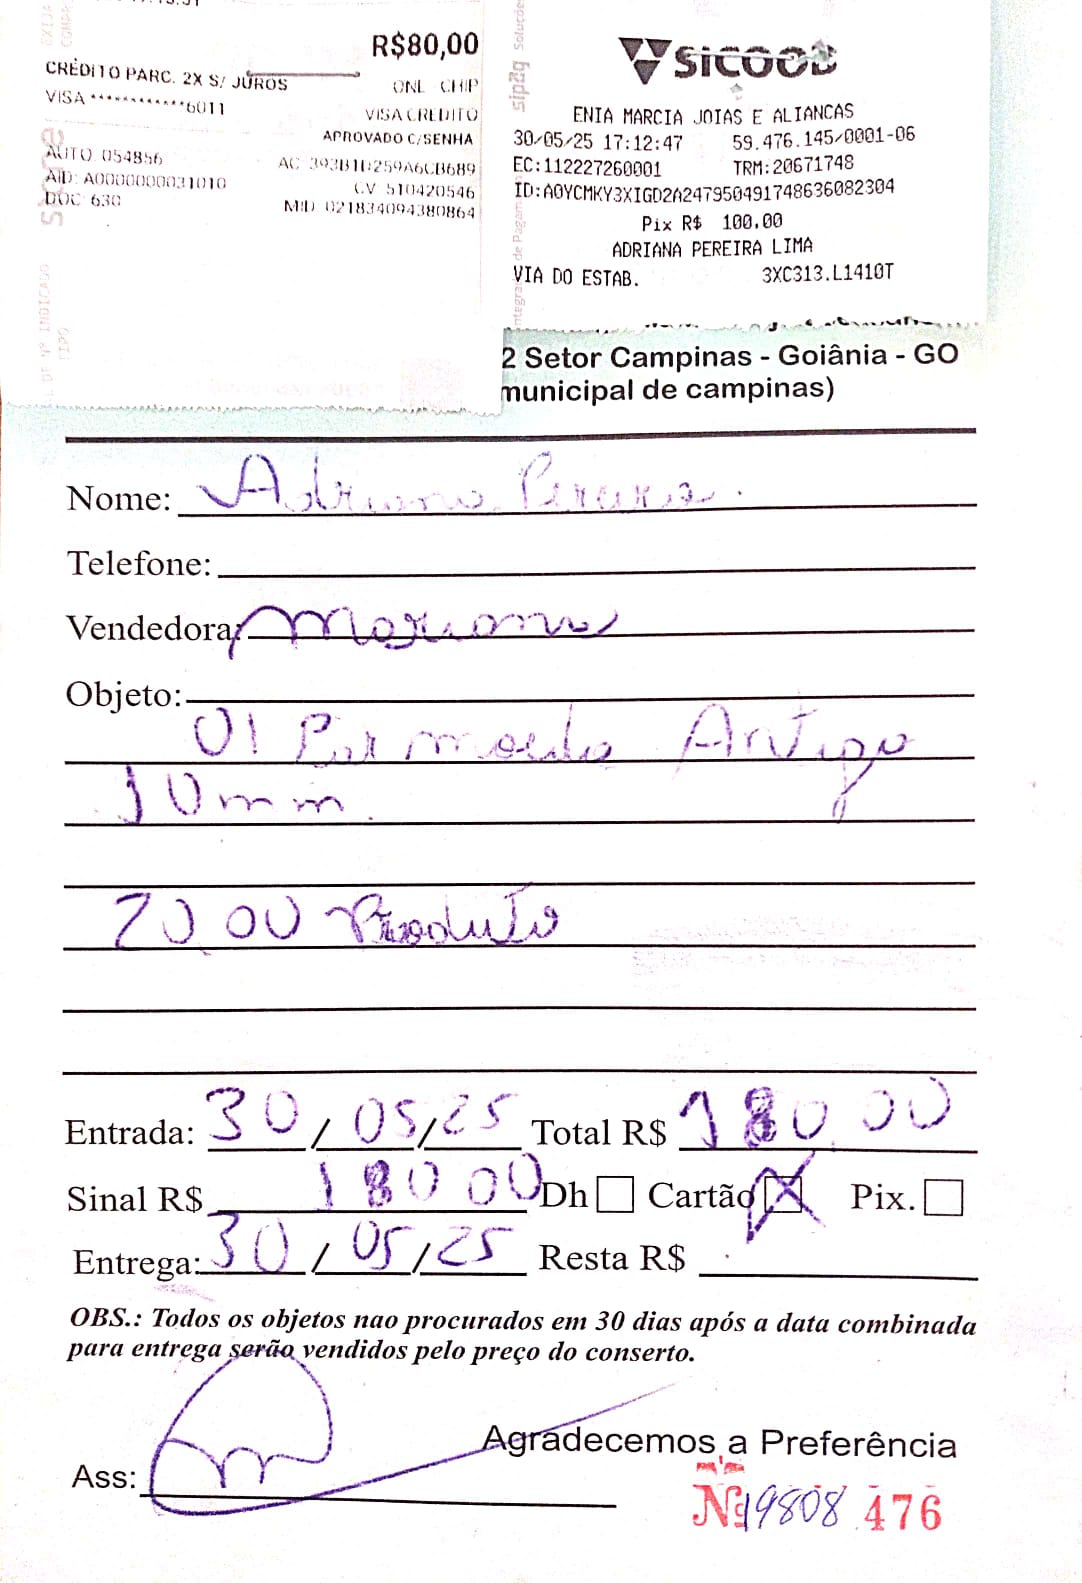 R$80,00
CRÉDITO PARC. 2X S/ JUROS
ONL CHIP
VISA ************6011
VISA CREDITO
APROVADO C/SENHA
AUTO 054856
AID: A0000000031010
CV 510420546
DOC 630
MID 021834094380864
SICOOB
ENIA MARCIA JOIAS E ALIANCAS
30/05/25 17:12:47 59.476.145/0001-06
EC:112227260001 TRM:20671748
ID:A0YCMKY3XIGD2A247950491748636082304
Pix R$ 100,00
ADRIANA PEREIRA LIMA
VIA DO ESTAB. 3XC313.L1410T
2 Setor Campinas - Goiânia - GO
municipal de campinas)
Nome: Adriana Pereira
Telefone:
Vendedora: Mariana
Objeto:
01 Par moeda Antiga
10mm
70 00 Produto
Entrada: 30/05/25 Total R$ 180,00
Sinal R$ 180 00 Dh Cartão X Pix.
Entrega: 30/05/25 Resta R$
OBS.: Todos os objetos nao procurados em 30 dias após a data combinada
para entrega serão vendidos pelo preço do conserto.
Agradecemos a Preferência
Ass:
Nº 19808 476